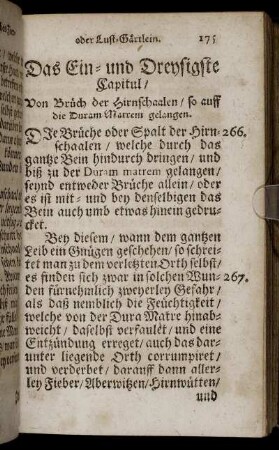 oder Lust-Gärtlein. 175
Das Ein- und Dreysigste
Capitul /
Von Brüch der Hirnschaalen / so auff
die Duram Matrem gelangen.
DJe Brüche oder Spalt der Hirn- 266.
schaalen / welche durch das
gantze Bein hindurch dringen / und
biß zu der Duram matrem gelangen /
seynd entweder Brüche allein / oder
es ist mit- und bey denselbigen das
Bein auch umb etwas hinein gedru-
cket.
Bey diesem / wann dem gantzen
Leib ein Gnügen geschehen / so schrei-
tet man zu dem verletzten Orth selbst /
es finden sich zwar in solchen Wun- 267.
den fürnehmlich zweyerley Gefahr /
als daß nemblich die Feüchtigkeit /
welche von der Dura Matre hinab-
weicht / daselbst verfaulet / und eine
Entzündung erreget / auch das dar-
unter liegende Orth corrumpiret /
und verderbet / darauff dann aller-
ley Fieber / Aberwitzen / Hirnwütten /
und